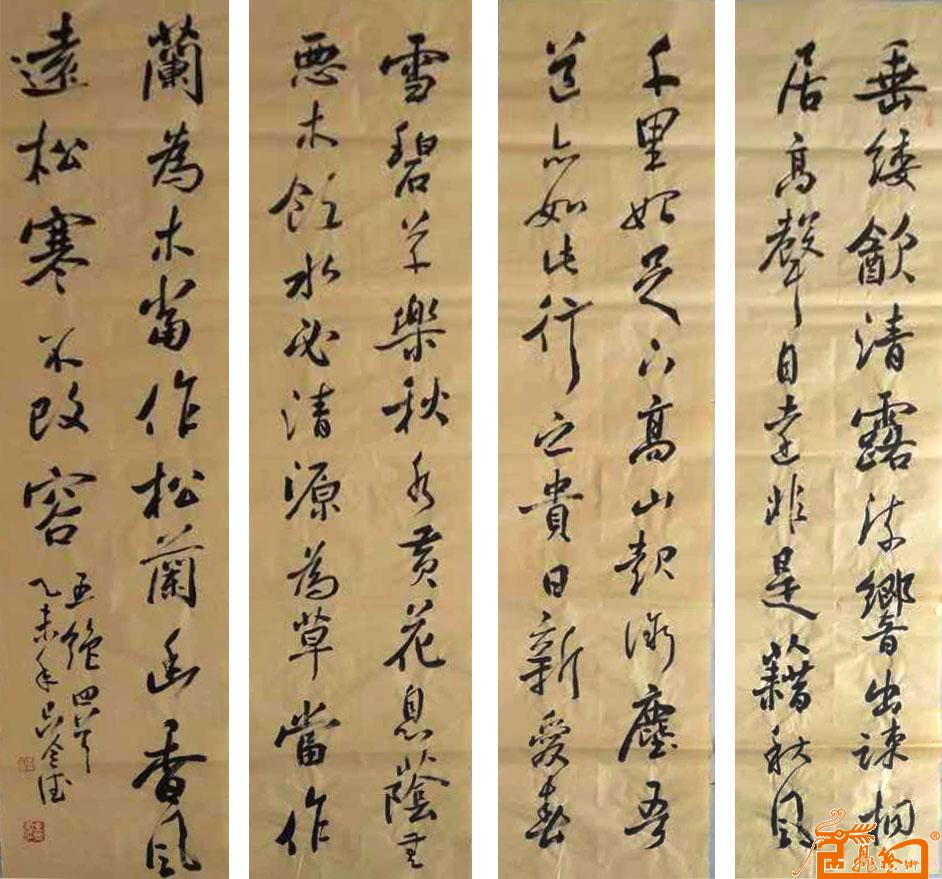 垂緌飲清露流響出疎桐
居高聲自遠非是藉秋風
千里始足下高山起微塵吾
道亦如此行之貴日新愛春
雪碧草樂秋水黄花息蔭無
惡木飲水必清源為草當作
蘭為木當作松蘭幽香風
遠松寒不改容
五絶四首
乙未年